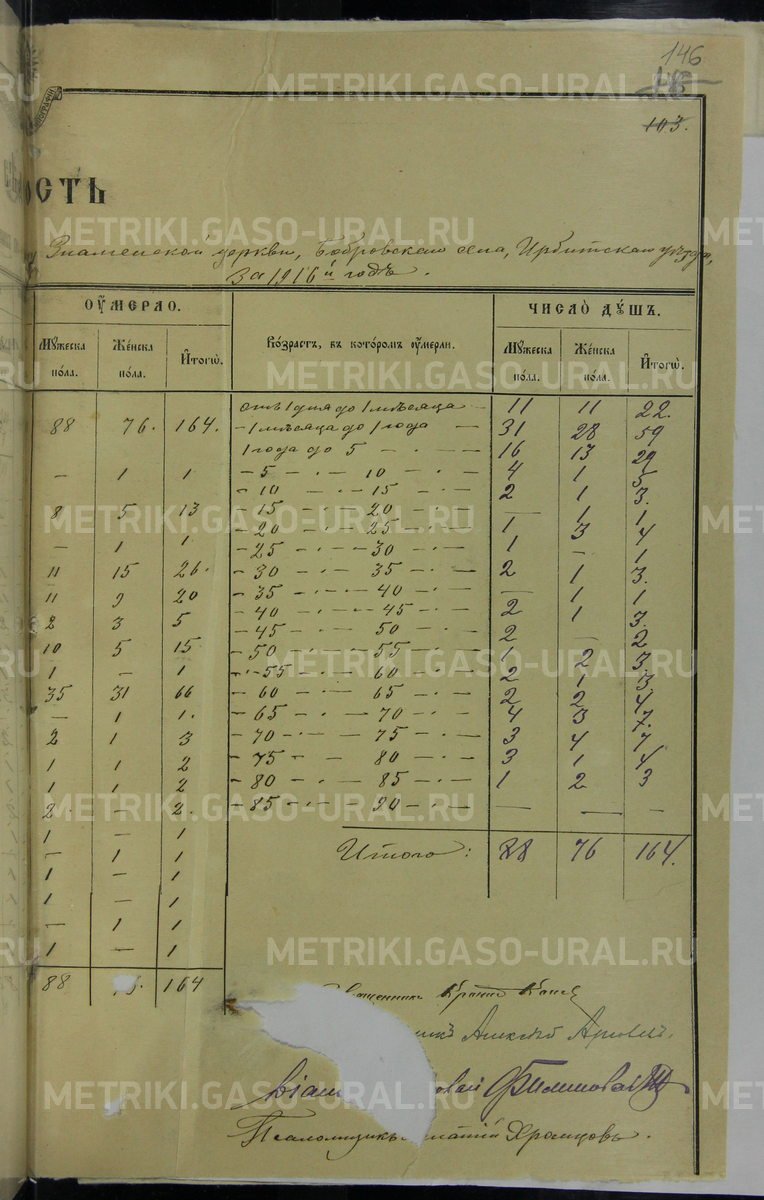 146
103.
ОСТЬ
Знаменской церкви, Бобровскаго села, Ирбитскаго уѣзда,
за 1916й годъ.
ОУМЕРЛО. ЧИСЛО ДУШЪ.
Мужеска пола. Женска пола. Итого. Возрастъ, въ которомъ оумерли. Мужеска пола. Женска пола. Итого.
отъ 1 дня до 1 мѣсяца — 11 11 22.
88 76. 164. — 1 мѣсяца до 1 года — 31 28 59
1 года до 5 — 16 13 29
— 1 1 — 5 — 10 — 4 1 5
— 10 — 15 — 2 1 3.
8 5 13 — 15 — 20 — — 1 1
— 20 — 25 — 1 3 4
— 1 1. — 25 — 30 — 1 — 1
11 15 26. — 30 — 35 — 2 1 3.
11 9 20 — 35 — 40 — — 1 1
2 3 5 — 40 — 45 — 2 1 3.
— 45 — 50 — 2 — 2
10 5 15 — 50 — 55 — 1 2 3.
1 — 1 — 55 — 60 — 2 1 3.
35 31 66 — 60 — 65 — 2 2 4
— 1 1. — 65 — 70 — 4 3 7.
2 1 3 — 70 — 75 — 3 4 7
1 1 2 — 75 — 80 — 3 1 4
1 1 2 — 80 — 85 — 1 2 3
2. — 2. — 85 — 90 — — — —
1 — 1
— 1 1 Итого: 88 76 164.
1 — 1
1 — 1
— 1 1
1 — 1
88 164
Священникъ
Алексѣй
Псаломщикъ Храмцовъ.
METRIKI.GASO-URAL.RU